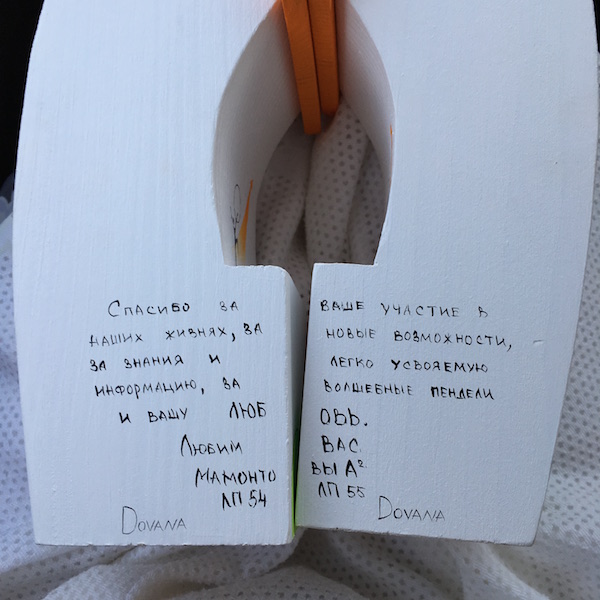 Спасибо за ваше участие в
наших жизнях, за новые возможности,
за знания и легко усвояемую
информацию, за волшебные пендели
и вашу любовь.
Любим вас
Мамонтовы А²
ЛП 54 ЛП 55
Dovana Dovana